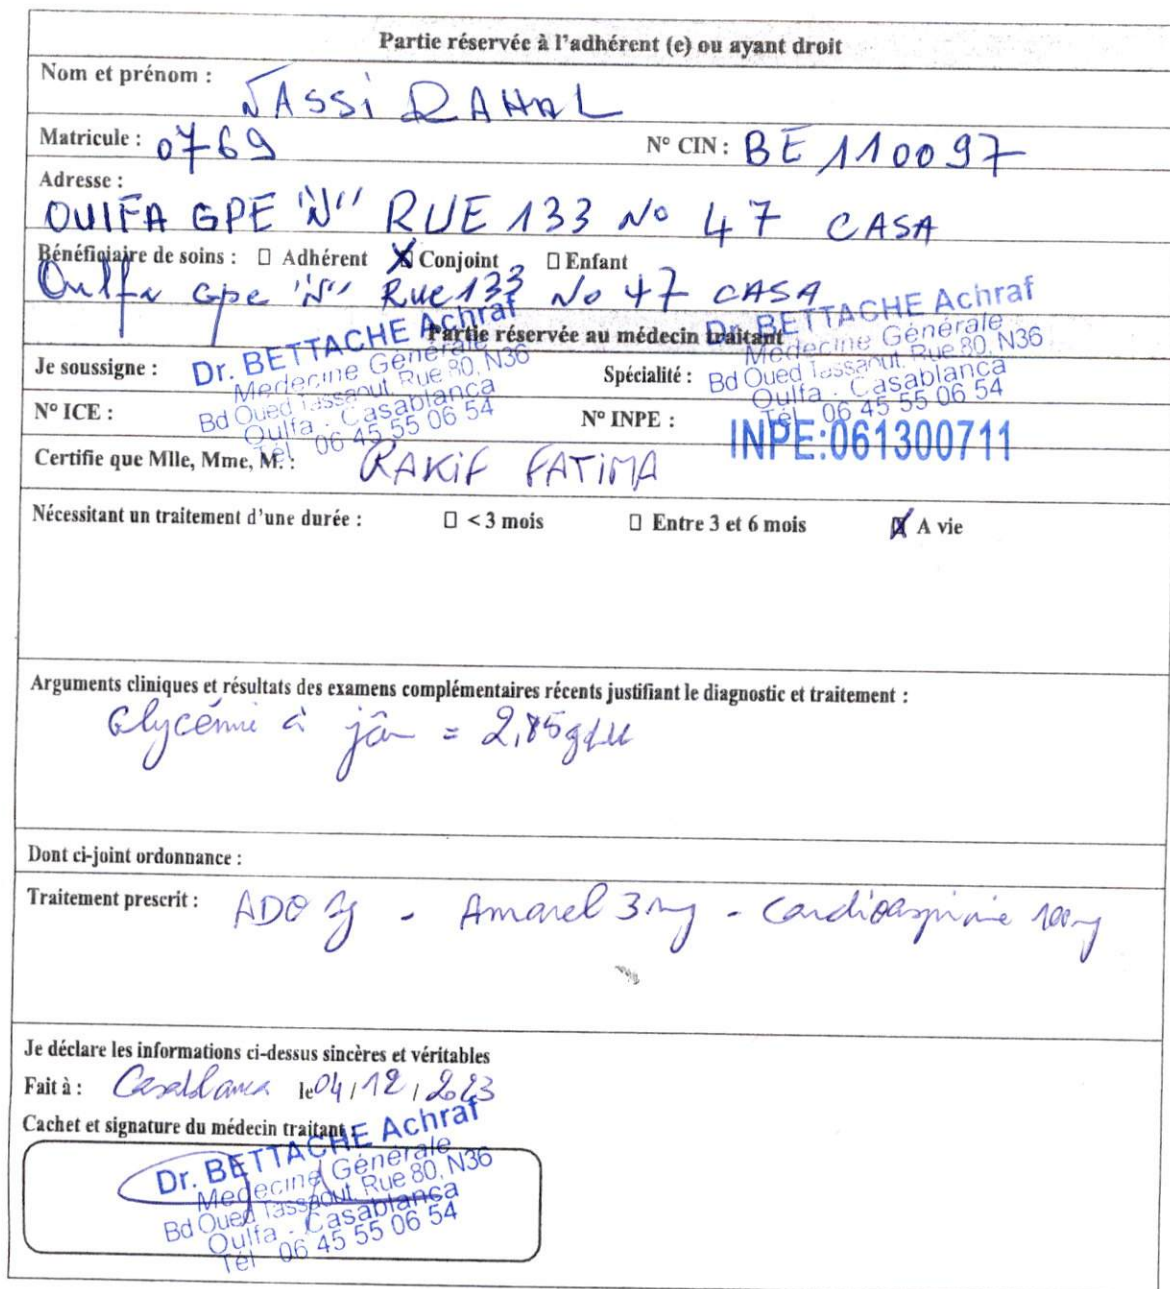 Partie réservée à l'adhérent (e) ou ayant droit
Nom et prénom : NASSi RAHAL
Matricule : 0769 N° CIN : BE 110097
Adresse :
OUIFA GPE "N" RUE 133 No 47 CASA
Bénéficiaire de soins : □ Adhérent ☒ Conjoint □ Enfant
Oulfa Gpe "N" Rue 133 No 47 CASA
Partie réservée au médecin traitant
Je soussigne : Dr. BETTACHE Achraf
Médecine Générale
Bd Oued Tassaout, Rue 80, N36
Oulfa - Casablanca
Tél 06 45 55 06 54
Spécialité : Dr. BETTACHE Achraf
Médecine Générale
Bd Oued Tassaout, Rue 80, N36
Oulfa - Casablanca
Tél 06 45 55 06 54
N° ICE : N° INPE : INPE:061300711
Certifie que Mlle, Mme, M. : RAKiF FATiMA
Nécessitant un traitement d'une durée : □ < 3 mois □ Entre 3 et 6 mois ☒ A vie
Arguments cliniques et résultats des examens complémentaires récents justifiant le diagnostic et traitement :
Glycémie à jân = 2,85
Dont ci-joint ordonnance :
Traitement prescrit : ADO - Amarel 3mg - Cardioaspirine 100mg
Je déclare les informations ci-dessus sincères et véritables
Fait à : Casablanca le 04/12/2023
Cachet et signature du médecin traitant :
Dr. BETTACHE Achraf
Médecine Générale
Bd Oued Tassaout, Rue 80, N36
Oulfa - Casablanca
Tél 06 45 55 06 54